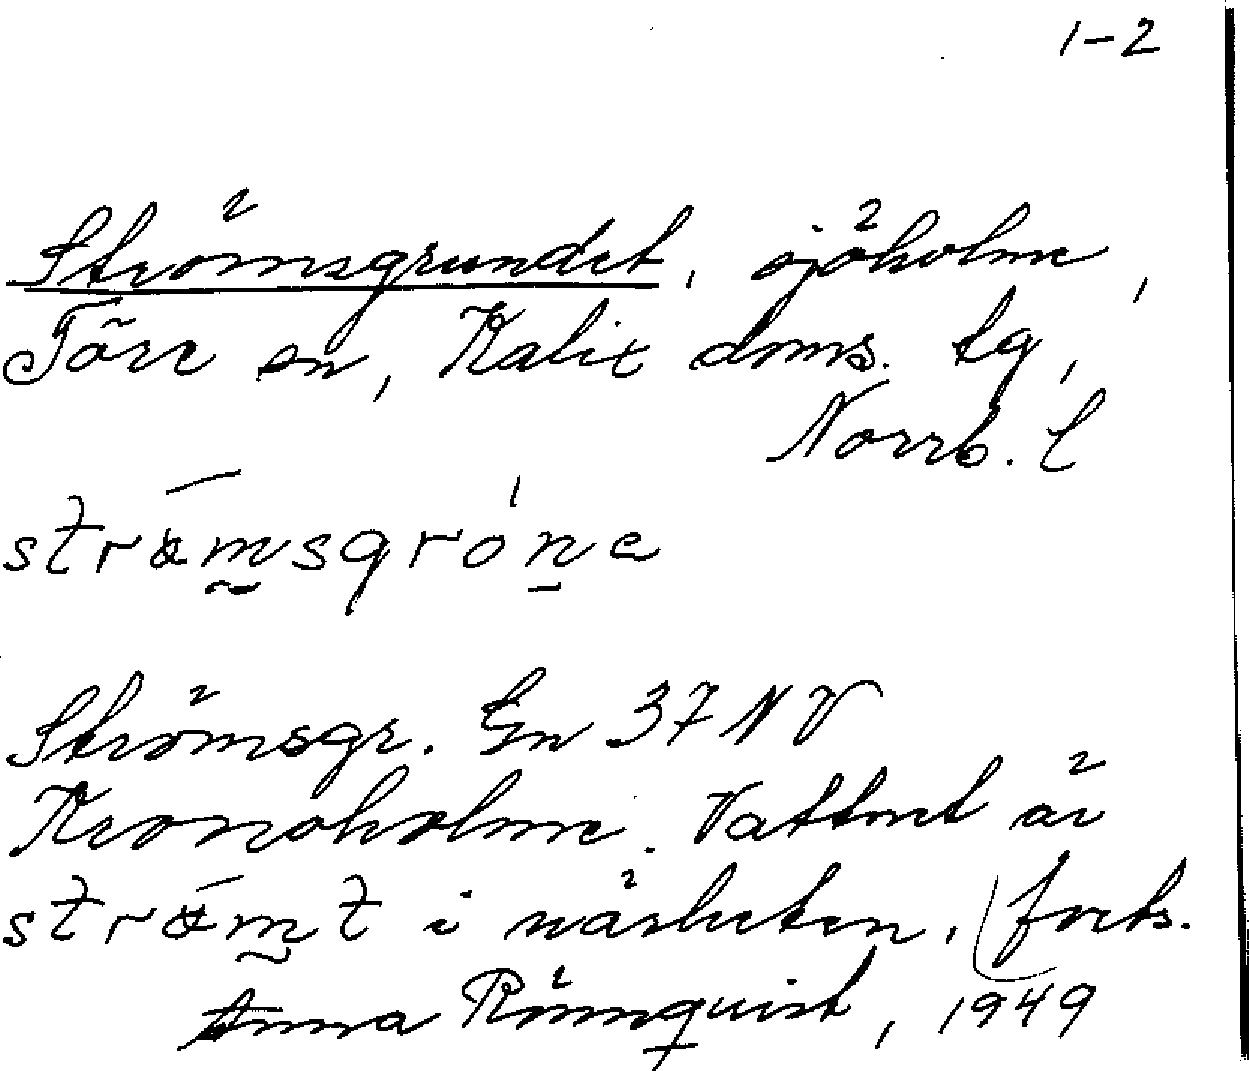 1-2
Strömsgrundet, sjöholme,
Töre sn, Kalix doms. tg,
Norrb. l
strömsgróne
Strömsgr. En 37 NV
Kronoholme. Vattnet är
strömt i närheten. forts.
Anna Rönnquist, 1949